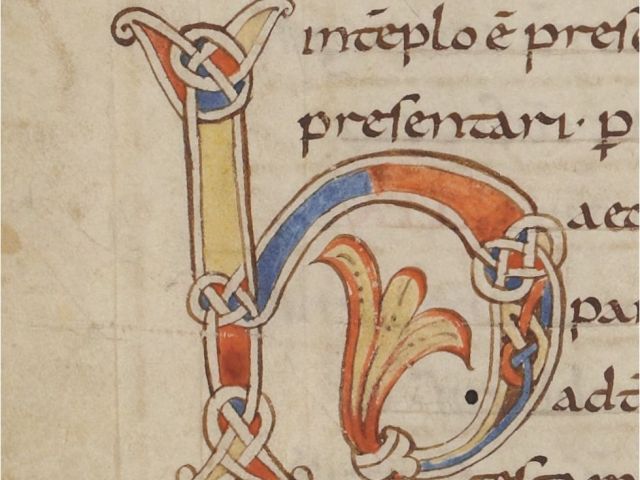 h
intēplo ē pres
presentari· p̱
aeo
par
adū